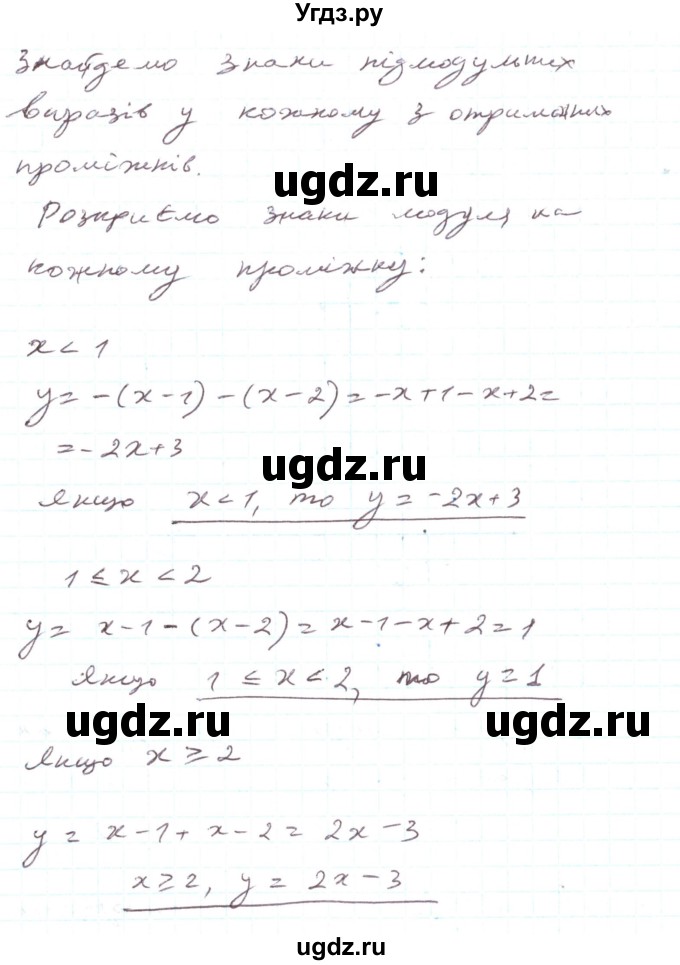 Угдз.ру
Знайдемо знаки підмодульних
виразів у кожному з отриманих
проміжків.
ugdz.ru
Розкриємо знаки модуля на
кожному проміжку:
x < 1
y = -(x-1) - (x-2) = -x+1-x+2=
= -2x+3
ugdz.ru
якщо x<1, то y = -2x+3
1 ≤ x < 2
y = x-1-(x-2) = x-1-x+2=1
Якщо 1 ≤ x < 2, то y = 1
ugdz.ru ugdz.ru
Якщо x ≥ 2
y = x-1+x-2 = 2x-3
x ≥ 2, y = 2x-3
ugdz.ru